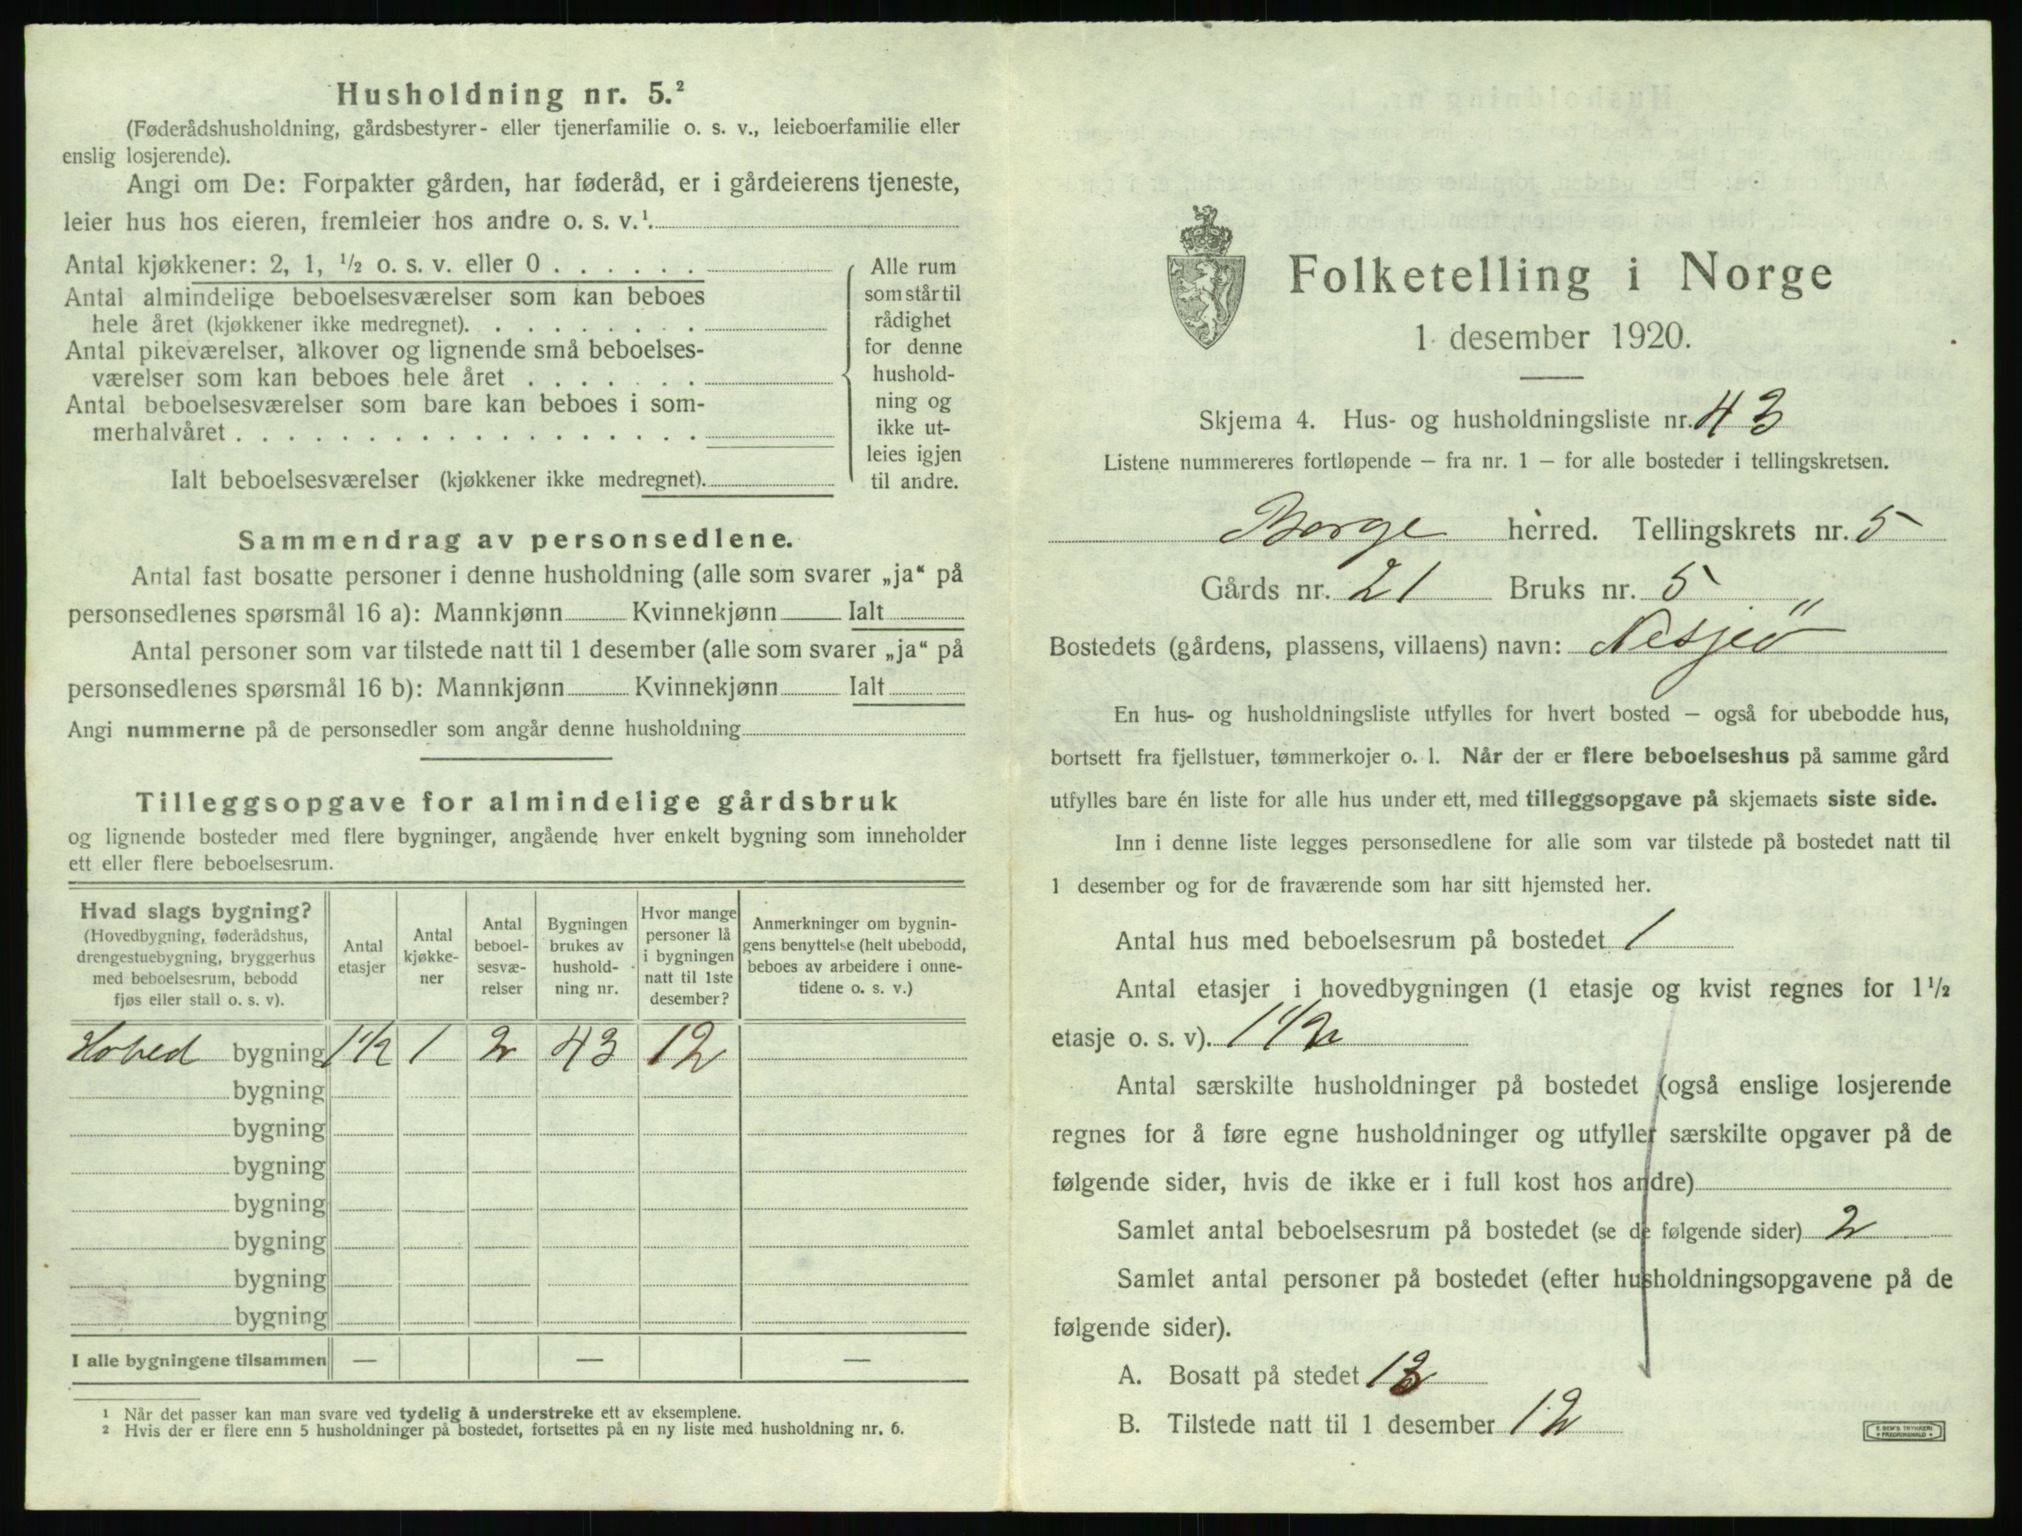 Husholdning nr. 5.²
(Føderådshusholdning, gårdsbestyrer- eller tjenerfamilie o. s. v., leieboerfamilie eller
enslig losjerende).
Angi om De: Forpakter gården, har føderåd, er i gårdeierens tjeneste,
leier hus hos eieren, fremleier hos andre o. s. v.¹.
Antal kjøkkener: 2, 1, ½ o. s. v. eller 0 . . . . . .
Antal almindelige beboelsesværelser som kan beboes
hele året (kjøkkener ikke medregnet). . . . . . . . .
Antal pikeværelser, alkover og lignende små beboelses-
værelser som kan beboes hele året . . . . . . .
Antal beboelsesværelser som bare kan beboes i som-
merhalvåret . . . . . . . . . . . . . . . . . .
Ialt beboelsesværelser (kjøkkener ikke medregnet).
Alle rum
som står til
rådighet
for denne
hushold-
ning og
ikke ut-
leies igjen
til andre.
Sammendrag av personsedlene.
Antal fast bosatte personer i denne husholdning (alle som svarer „ja“ på
personsedlenes spørsmål 16 a): Mannkjønn Kvinnekjønn Ialt
Antal personer som var tilstede natt til 1 desember (alle som svarer „ja“ på
personsedlenes spørsmål 16 b): Mannkjønn Kvinnekjønn Ialt
Angi nummerne på de personsedler som angår denne husholdning
Tilleggsopgave for almindelige gårdsbruk
og lignende bosteder med flere bygninger, angående hver enkelt bygning som inneholder
ett eller flere beboelsesrum.
Hvad slags bygning?
(Hovedbygning, føderådshus,
drengestuebygning, bryggerhus
med beboelsesrum, bebodd
fjøs eller stall o. s. v).
Antal
etasjer
Antal
kjøkke-
ner
Antal
beboel-
sesvæ-
relser
Bygningen
brukes av
hushold-
ning nr.
Hvor mange
personer lå
i bygningen
natt til 1ste
desember?
Anmerkninger om bygnin-
gens benyttelse (helt ubebodd,
beboes av arbeidere i onne-
tidene o. s. v.)
Hoved bygning 1½ 1 2 43 12
bygning
bygning
bygning
bygning
bygning
bygning
bygning
I alle bygningene tilsammen — — —
¹ Når det passer kan man svare ved tydelig å understreke ett av eksemplene.
² Hvis der er flere enn 5 husholdninger på bostedet, fortsettes på en ny liste med husholdning nr. 6.
Folketelling i Norge
1. desember 1920.
Skjema 4. Hus- og husholdningsliste nr. 43
Listene nummereres fortløpende – fra nr. 1 – for alle bosteder i tellingskretsen.
Borge herred. Tellingskrets nr. 5
Gårds nr. 21 Bruks nr. 5
Bostedets (gårdens, plassens, villaens) navn: Nesjeö
En hus- og husholdningsliste utfylles for hvert bosted – også for ubebodde hus,
bortsett fra fjellstuer, tømmerkojer o. l. Når der er flere beboelseshus på samme gård
utfylles bare én liste for alle hus under ett, med tilleggsopgave på skjemaets siste side.
Inn i denne liste legges personsedlene for alle som var tilstede på bostedet natt til
1 desember og for de fraværende som har sitt hjemsted her.
Antal hus med beboelsesrum på bostedet 1
Antal etasjer i hovedbygningen (1 etasje og kvist regnes for 1½
etasje o. s. v). 1½
Antal særskilte husholdninger på bostedet (også enslige losjerende
regnes for å føre egne husholdninger og utfyller særskilte opgaver på de
følgende sider, hvis de ikke er i full kost hos andre)
Samlet antal beboelsesrum på bostedet (se de følgende sider) 2
Samlet antal personer på bostedet (efter husholdningsopgavene på de
følgende sider).
A. Bosatt på stedet 13
B. Tilstede natt til 1 desember 12